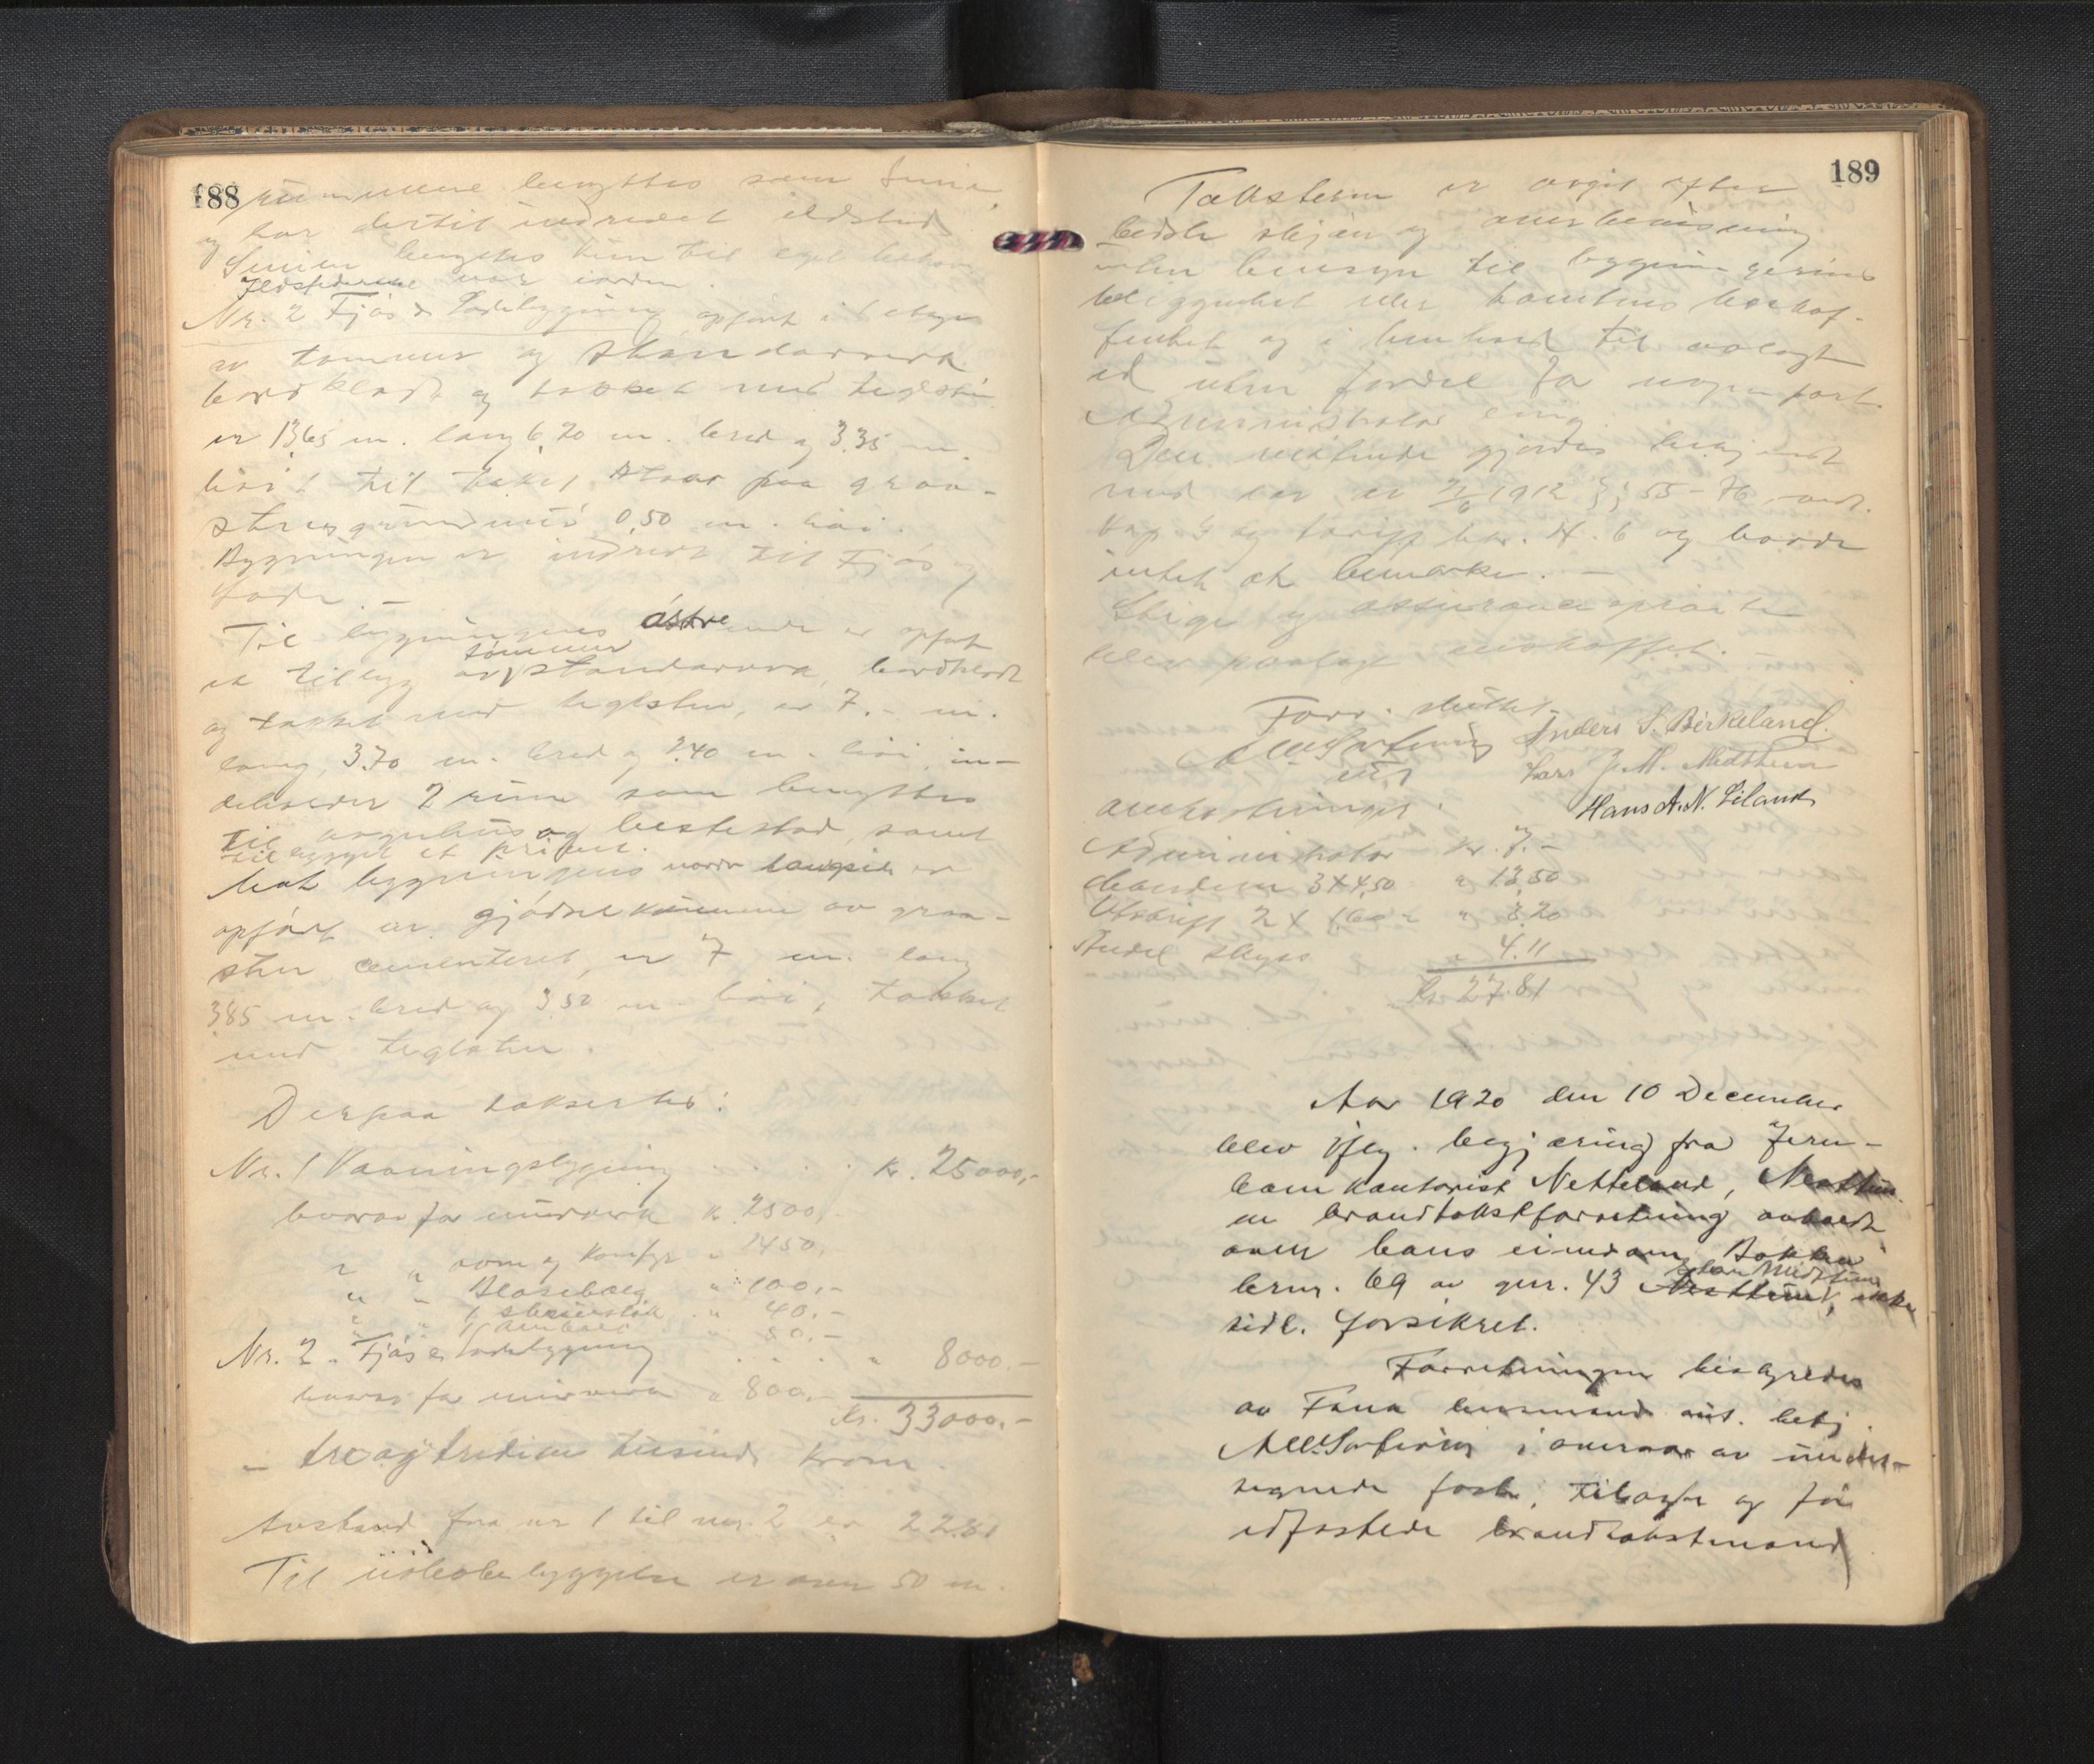 188
rummene benyttes som Smie
og har dertil indredet ildsted
Smien benyttes kun til eget behov
Ildstederne var iorden.
Nr. 2 Fjøs & Ladebygning opført i 1 etage
av tømmer og standarverk
bordklædt og tækket med teglsten
er 13,65 m. lang 6,70 m. bred og 3,35 m.
høi til taket staar paa graa-
stensgrundmur 0,50 m. høi.
Bygningen er indredet til Fjøs og
Lade. -
Til bygningens østre ende er opført
tømmer
et tilbygg av standarverk, bordklædt
og tækket med teglsten, er 7.- m.
lang, 3.70 m. bred og 2.40 m. høi, in-
deholder 2 rum som benyttes
til vognhus og hestestad, samt
tilbygget et privet.
Mot bygningens nordre langside er
opført en gjødselkumme av graa-
sten cementeret, er 7 m. lang
3.85 m. bred og 3.50 m. høi, tækket
med teglsten.
Derpaa takseertes:
Nr. 1 Vaaningsbygning . . . . kr. 25000,-
hvorav for murverk kr. 2500,-
" " ovn og komfyr " 1450,-
" " Blæsebælg " 100,-
" " 1 " 40.-
" " 1 ambolt " 50.-
Nr. 2. Fjøs & Ladebygning . . . . " 8000.-
hvorav for murverk " 800.-
Kr. 33000.-
- treogtredive tusinde kroner.
Avstand fra nr 1 til nr. 2 er 22.50
Til bebyggelse er over 50 m.
189
Taksten er avgit efter
bedste skjøn og overbevisning
uten hensyn til bygningernes
beliggenhet eller tomtens beskaf-
fenhet og i henhold til avlagt
ed uten fordel for nogen part.
Administrator enig.
Den møtende gjordes bekjendt
med lov av 1912 §§ 55-76 samt
kap. 9 og tariff bok. N. 6 og havde
intet at bemerke. -
Stige og assurancesprøite
blev paalagt anskaffet.
Forr. sluttet.
Anders S. Birkeland.
Lars J. M. Midthun
Hans A. N. Liland
Omkostninger.
Administrator kr. 7.-
Mændene 3 x 4,50 " 13,50
Utskrift 2 x 1,60 " 3,20
Andel skyss " 4.11
Kr. 27.81
Aar 1920 den 10 December
blev ifølg. begjæring fra Jern-
banekontorist Netteland, Nesttun
en brandtakstforretning avholdt
over hans eiendom Bakka
brnr. 69 av gnr. 43 Midttun, ikke
tidl. forsikret.
Forretningen bestyredes
av Fana lensmand aut. betj.
i overvær av under-
tegnede fast, tillagte og før
edfæstede brandtakstmænd